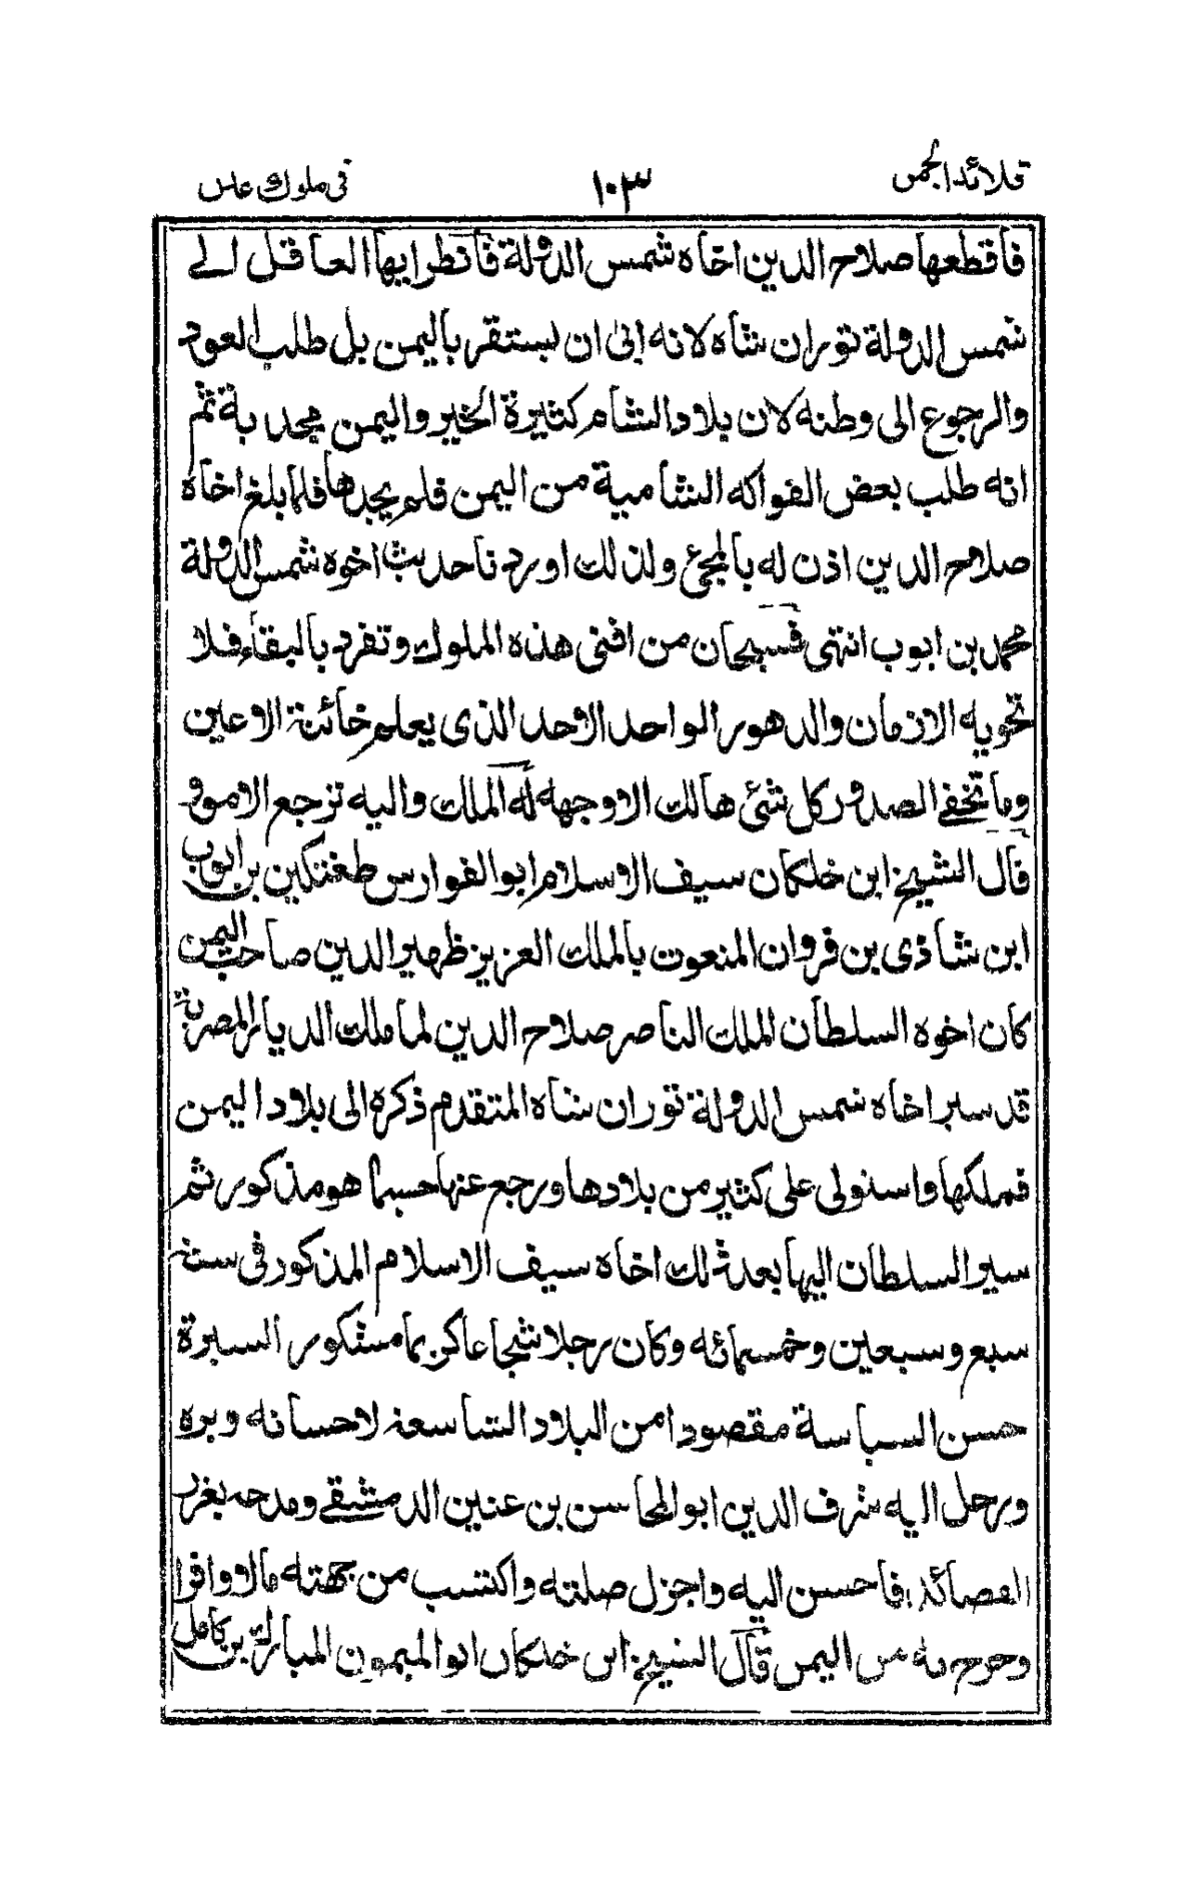 قلائد الجمن ١٠٣ في ملوك عدن
فاقطعها صلاح الدين اخاه شمس الدولة فانظر ايها العاقل الے
شمس الدولة توران شاه لانه ابىٰ ان يستقر باليمن بل طلب العود
والرجوع الى وطنه لان بلاد الشام كثيرة الخير واليمن مجدبة ثم
انه طلب بعض الفواكه الشامية من اليمن فلم يجدها فلما بلغ اخاه
صلاح الدين اذن له بالمجئ ولذلك اوردنا حديث اخوه شمس الدولة
محمد بن ايوب انتهى فسبحان من افنى هذه الملوك وتفرد بالبقاء فلا
تحويه الازمان والدهور الواحد الاحد الذى يعلم خائنة الاعين
وما تخفے الصدور كل شئ هالك الا وجهه له الملك واليه ترجع الامور
قال الشيخ ابن خلكان سيف الاسلام ابو الفوارس طغتكين بن ايوب
ابن شاذى بن فروان المنعوت بالملك العزيز ظهير الدين صاحب اليمن
كان اخوه السلطان الملك الناصر صلاح الدين لما ملك الديار المصرية
قد سير اخاه شمس الدولة توران شاه المتقدم ذكره الى بلاد اليمن
فملكها واستولى على كثير من بلادها ورجع عنها حسبما هو مذكور ثم
سير السلطان اليها بعد ذلك اخاه سيف الاسلام المذكور فى سنة
سبع وسبعين وخمسمائه وكان رجلا شجاعا كريما مشكور السيرة
حسن السياسة مقصودا من البلاد الشاسعة لاحسانه وبره
ورحل اليه شرف الدين ابو المحاسن بن عنين الدمشقے ومدحه بغرر
القصائد فاحسن اليه واجزل صلته واكتسب من جهته مالا وافرا
وخرج به من اليمن قال الشيخ ابن خلكان ابو الميمون المبارك بن كامل